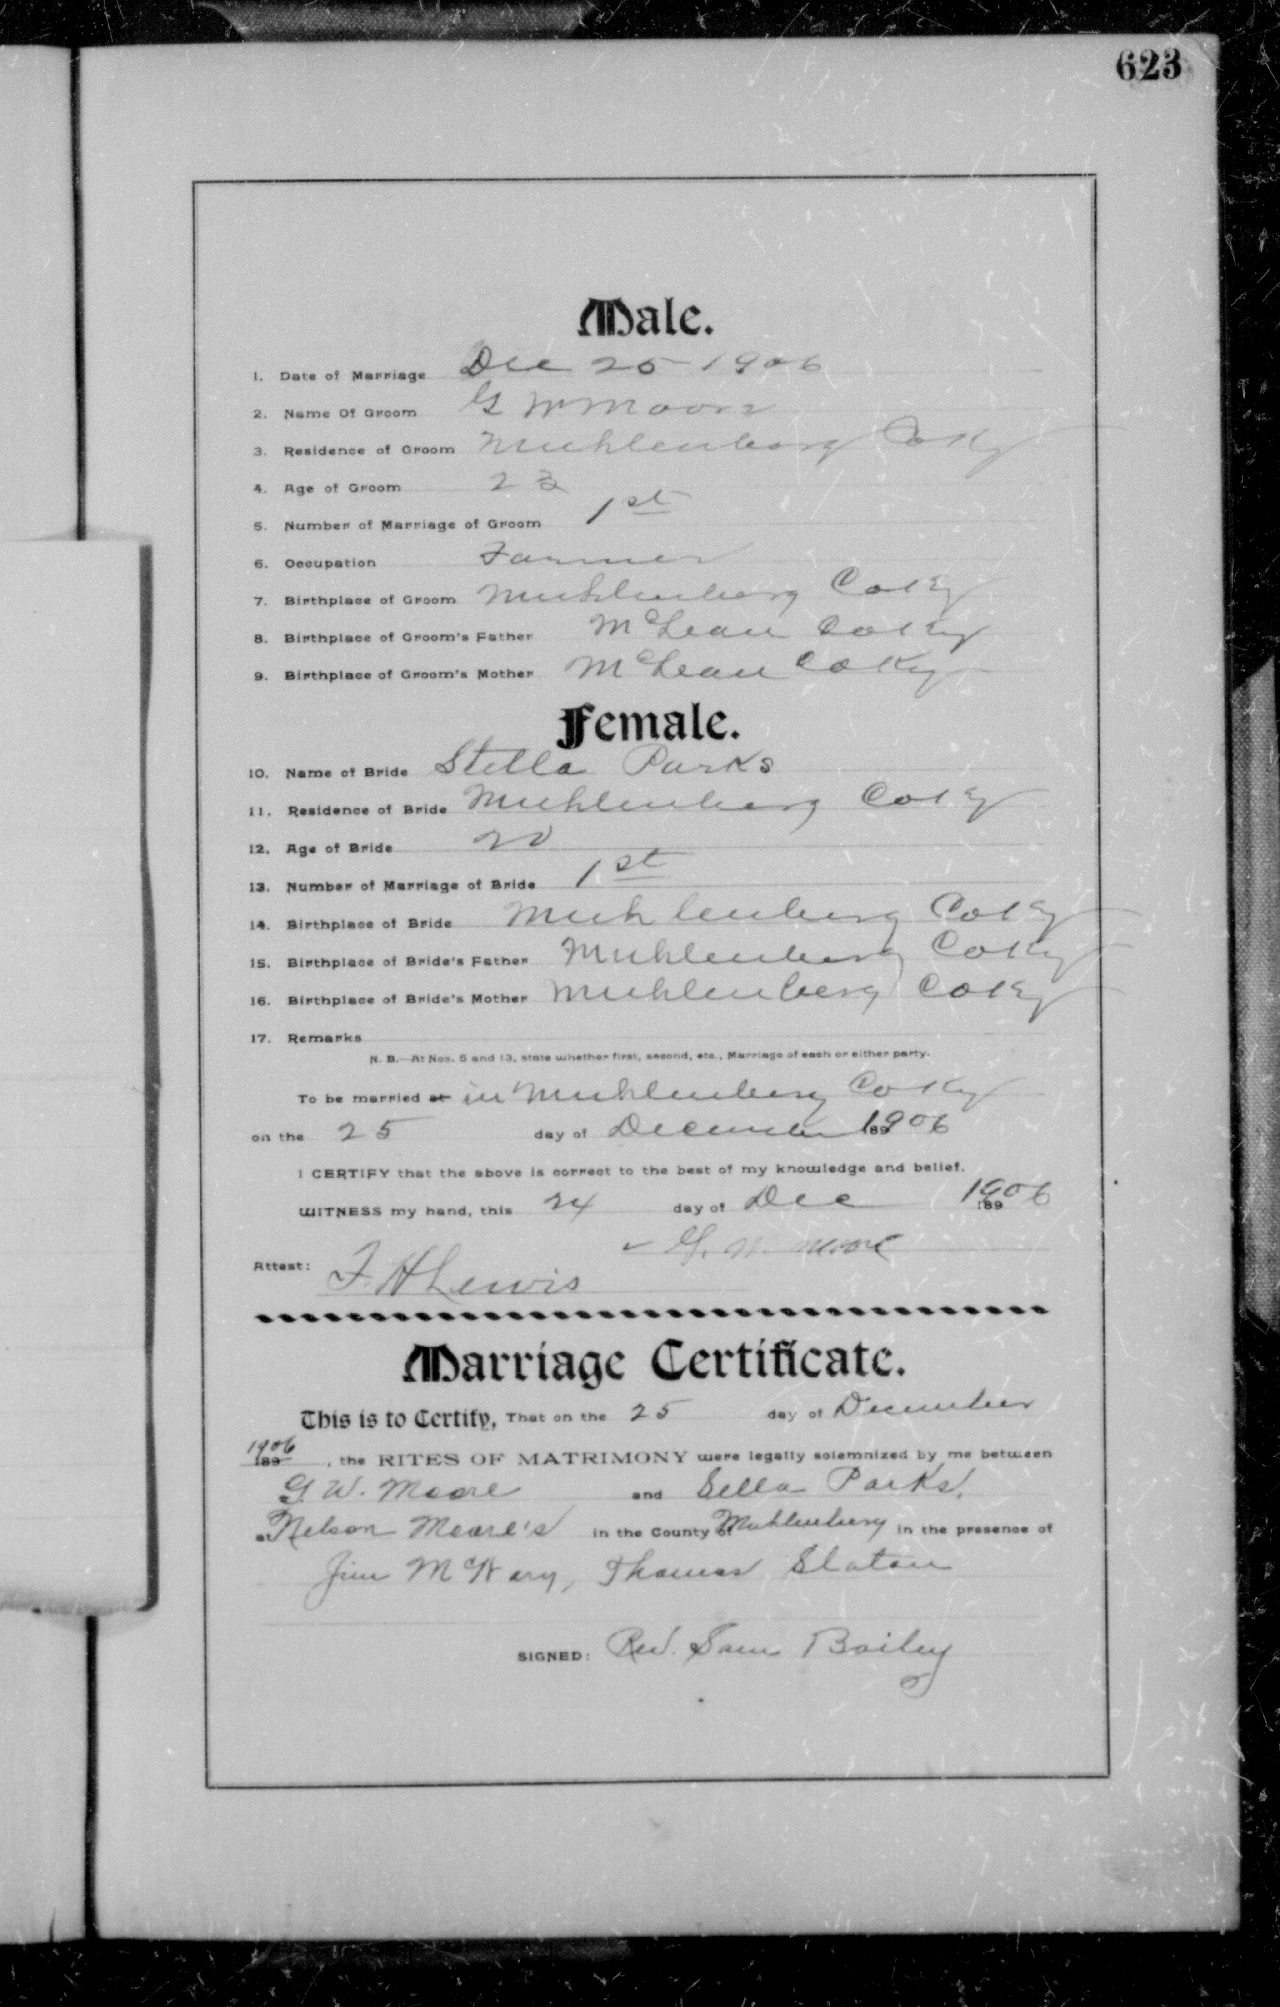 623
Male.
1. Date of Marriage Dec 25 1906
2. Name Of Groom G W Moore
3. Residence of Groom Muhlenberg Co Ky
4. Age of Groom 23
5. Number of Marriage of Groom 1st
6. Occupation Farmer
7. Birthplace of Groom Muhlenberg Co Ky
8. Birthplace of Groom's Father McLean Co Ky
9. Birthplace of Groom's Mother McLean Co Ky
Female.
10. Name of Bride Stella Parks
11. Residence of Bride Muhlenberg Co Ky
12. Age of Bride 20
13. Number of Marriage of Bride 1st
14. Birthplace of Bride Muhlenberg Co Ky
15. Birthplace of Bride's Father Muhlenberg Co Ky
16. Birthplace of Bride's Mother Muhlenberg Co Ky
17. Remarks
N. B.—At Nos. 5 and 13, state whether first, second, etc., Marriage of each or either party.
To be married at in Muhlenberg Co Ky
on the 25 day of December 189 1906
I CERTIFY that the above is correct to the best of my knowledge and belief.
WITNESS my hand, this 24 day of Dec 189 1906
G. W. Moore
Attest: F. H Lewis
Marriage Certificate.
This is to Certify, That on the 25 day of December
1906 189 , the RITES OF MATRIMONY were legally solemnized by me between
G. W. Moore and Sella Parks.
at Nelson Moore's in the County of Muhlenberg in the presence of
Jim McNary, Thomas Slaton
SIGNED: Rev. Sam Bailey